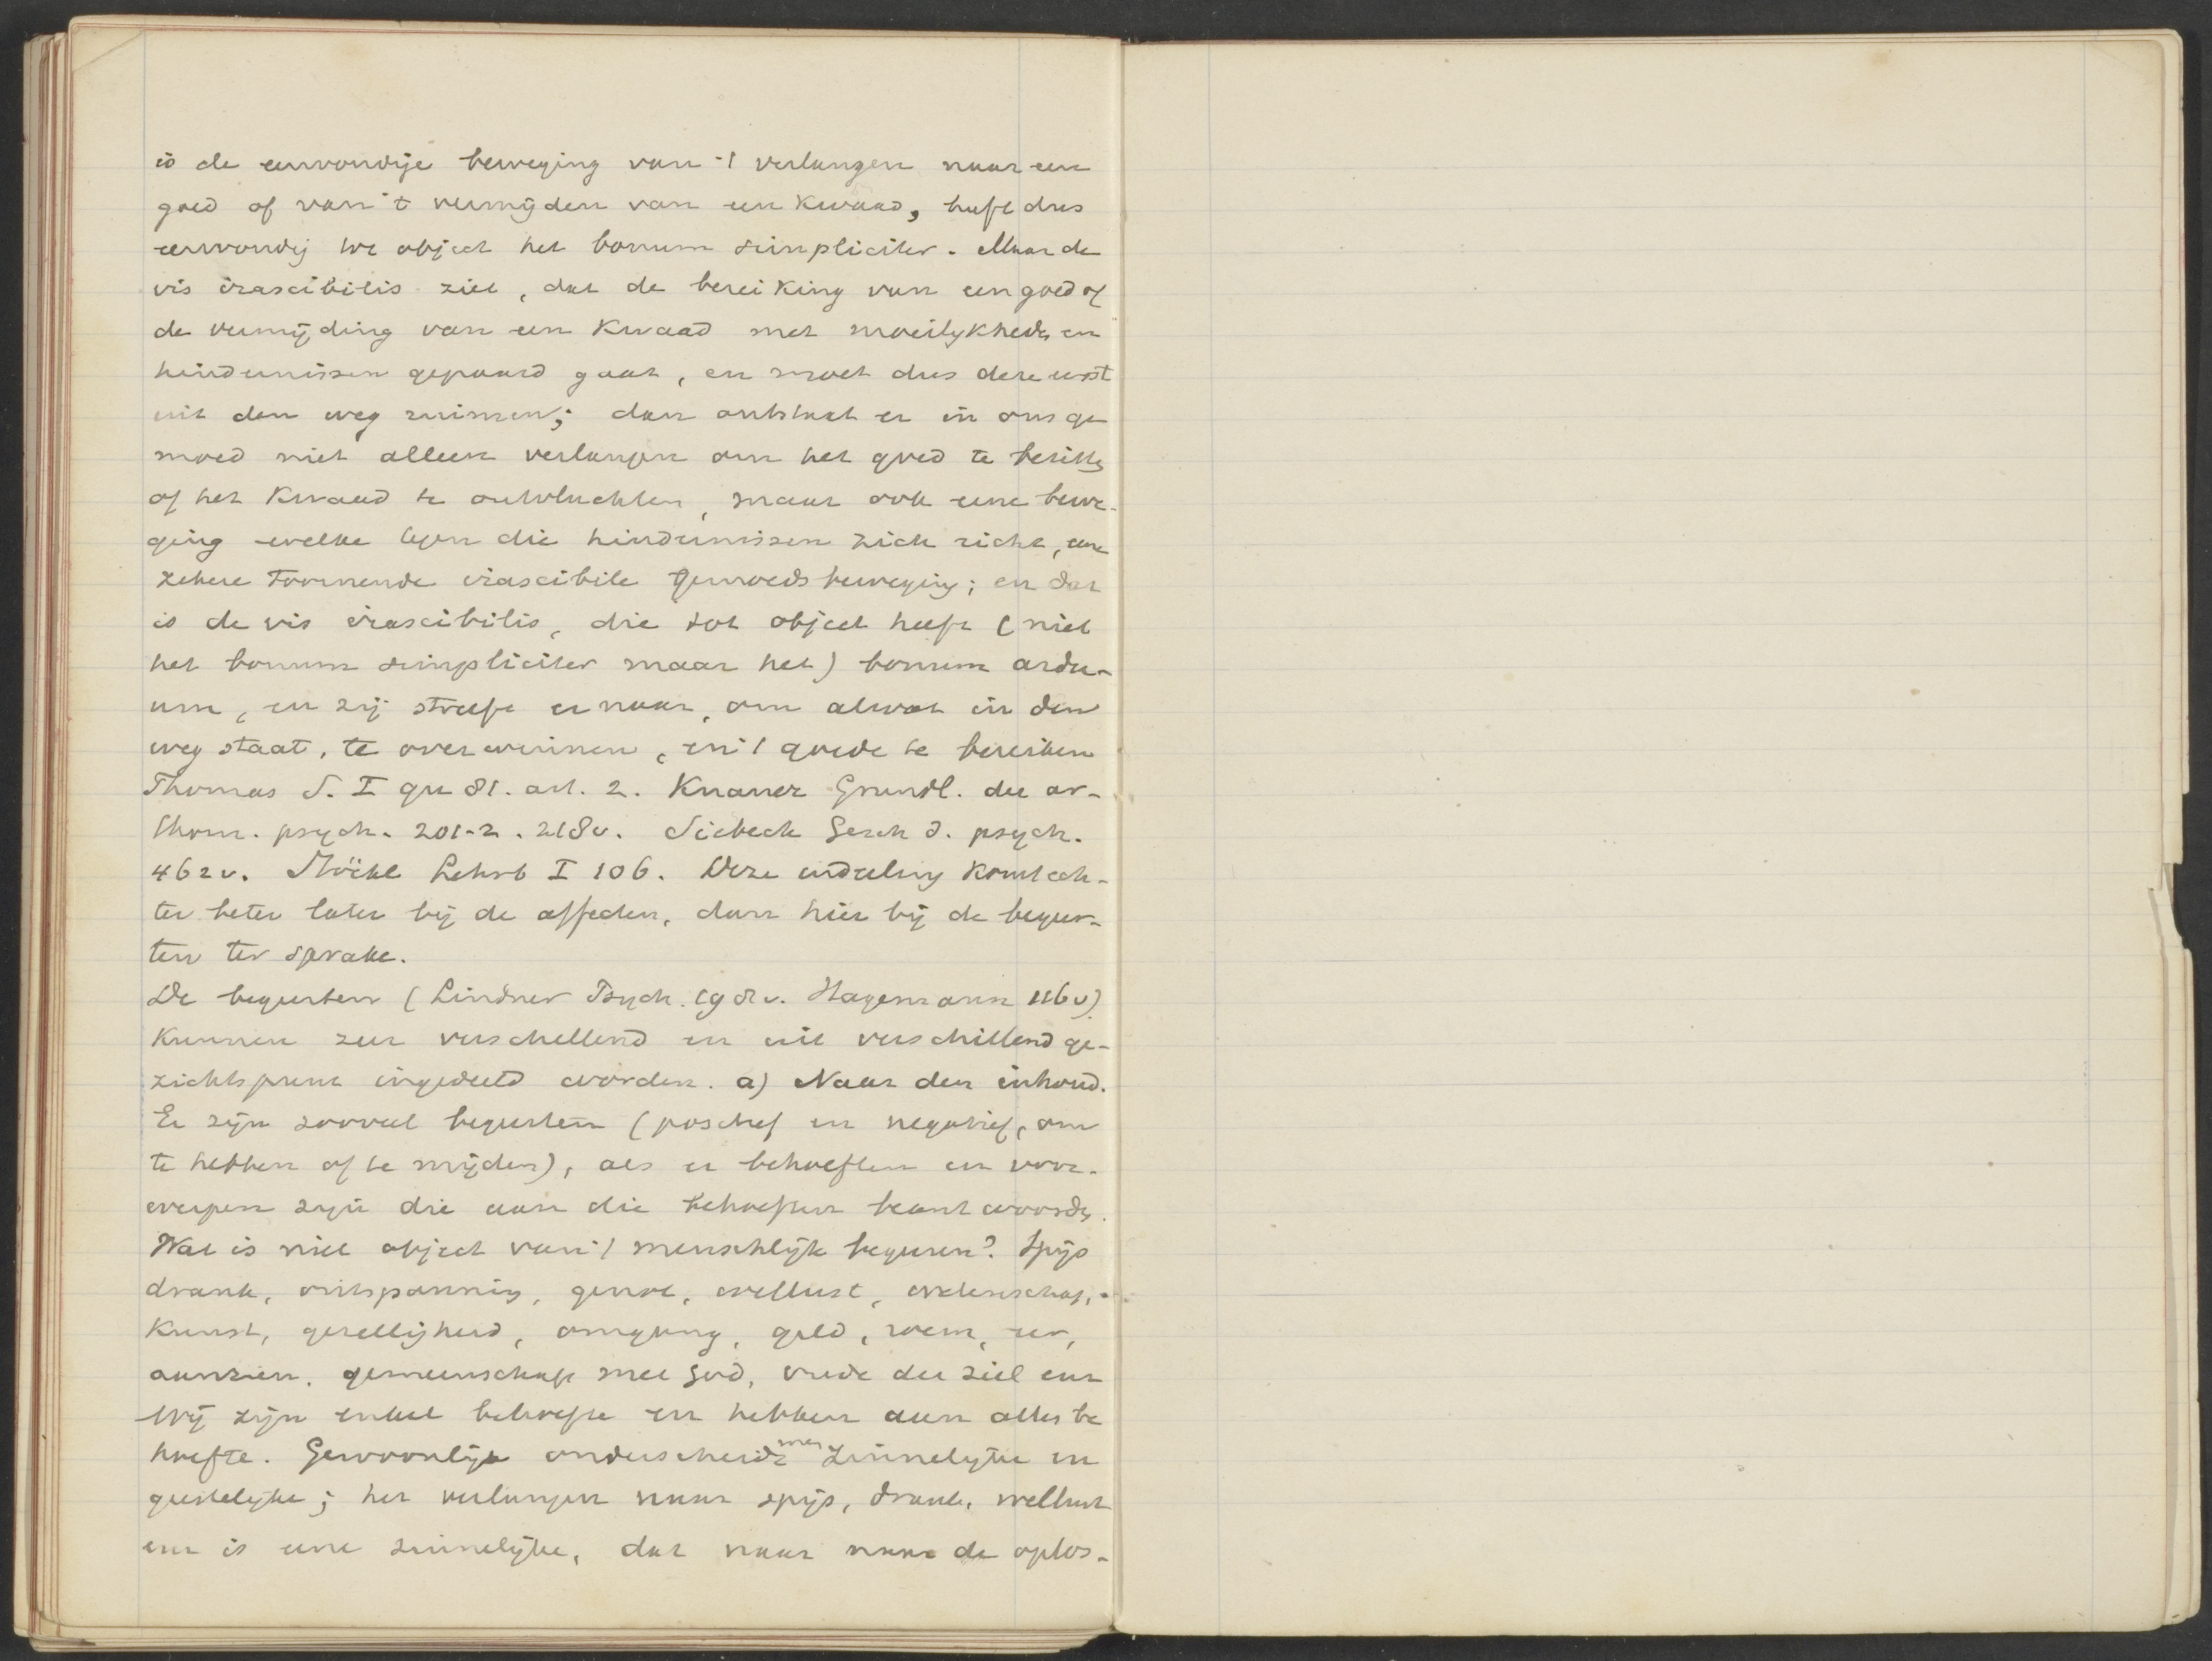 is de eenvoudige beweging van 't verlangen naar een
goed of van 't vermijden van een kwaad, heeft dus
eenvoudig tot object het bonum simpliciter. Maar de
vis irascibilis ziet, dat de bereiking van een goed of
de vermijding van een kwaad met moeilijkheden en
hindernissen gepaard gaat, en moet dus deze eerst
uit den weg ruimen; dan ontstaat er in ons ge
moed niet alleen verlangen om het goed te bezitten
of het kwaad te ontvluchten, maar ook eene bewe-
ging welke tegen die hindernissen zich richt, eene
zekere toornende irascibile gemoedsbeweging; en dat
is de vis irascibilis, die tot object heeft (niet
het bonum simpliciter maar het) bonum ardu-
um, en zij streeft er naar, om alwat in den
weg staat, te overwinnen, en 't goede te bereiken
Thomas S. I qu 81. art. 2. Knauer Grundl. der ar-
thom. psych. 201-2. 218v. Siebeck Gesch d. psych.
462v. Stöckl Lehrb I 106. Deze indeeling komt ech-
ter beter later bij de affecten, dan hier bij de begeer-
ten ter sprake.
De begeerten (Lindner Psych. 198v. Hagemann 116v)
kunnen zeer verschellend en uit verschillend ge-
zichtspunt ingedeeld worden. a) Naar den inhoud.
Er zijn zooveel begeerten (positief en negatief, om
te hebben of te mijden), als er behoeften en voor-
werpen zijn die aan die behoeften beantwoorden.
Wat is niet object van 't menschlijk begeeren? Spijs
drank, ontspanning, genot, wellust, wetenschap,
kunst, gezelligheid, omgang, geld, roem, eer,
aanzien, gemeenschap met God, vrede der ziel enz
Wij zijn enkel behoefte en hebben aan alles be
hoefte. Gewoonlijk onderscheidt men zinnelijke en
geestelijke; het verlangen naar spijs, drank, wellust
enz is eene zinnelijke, dat naar naar de oplos-